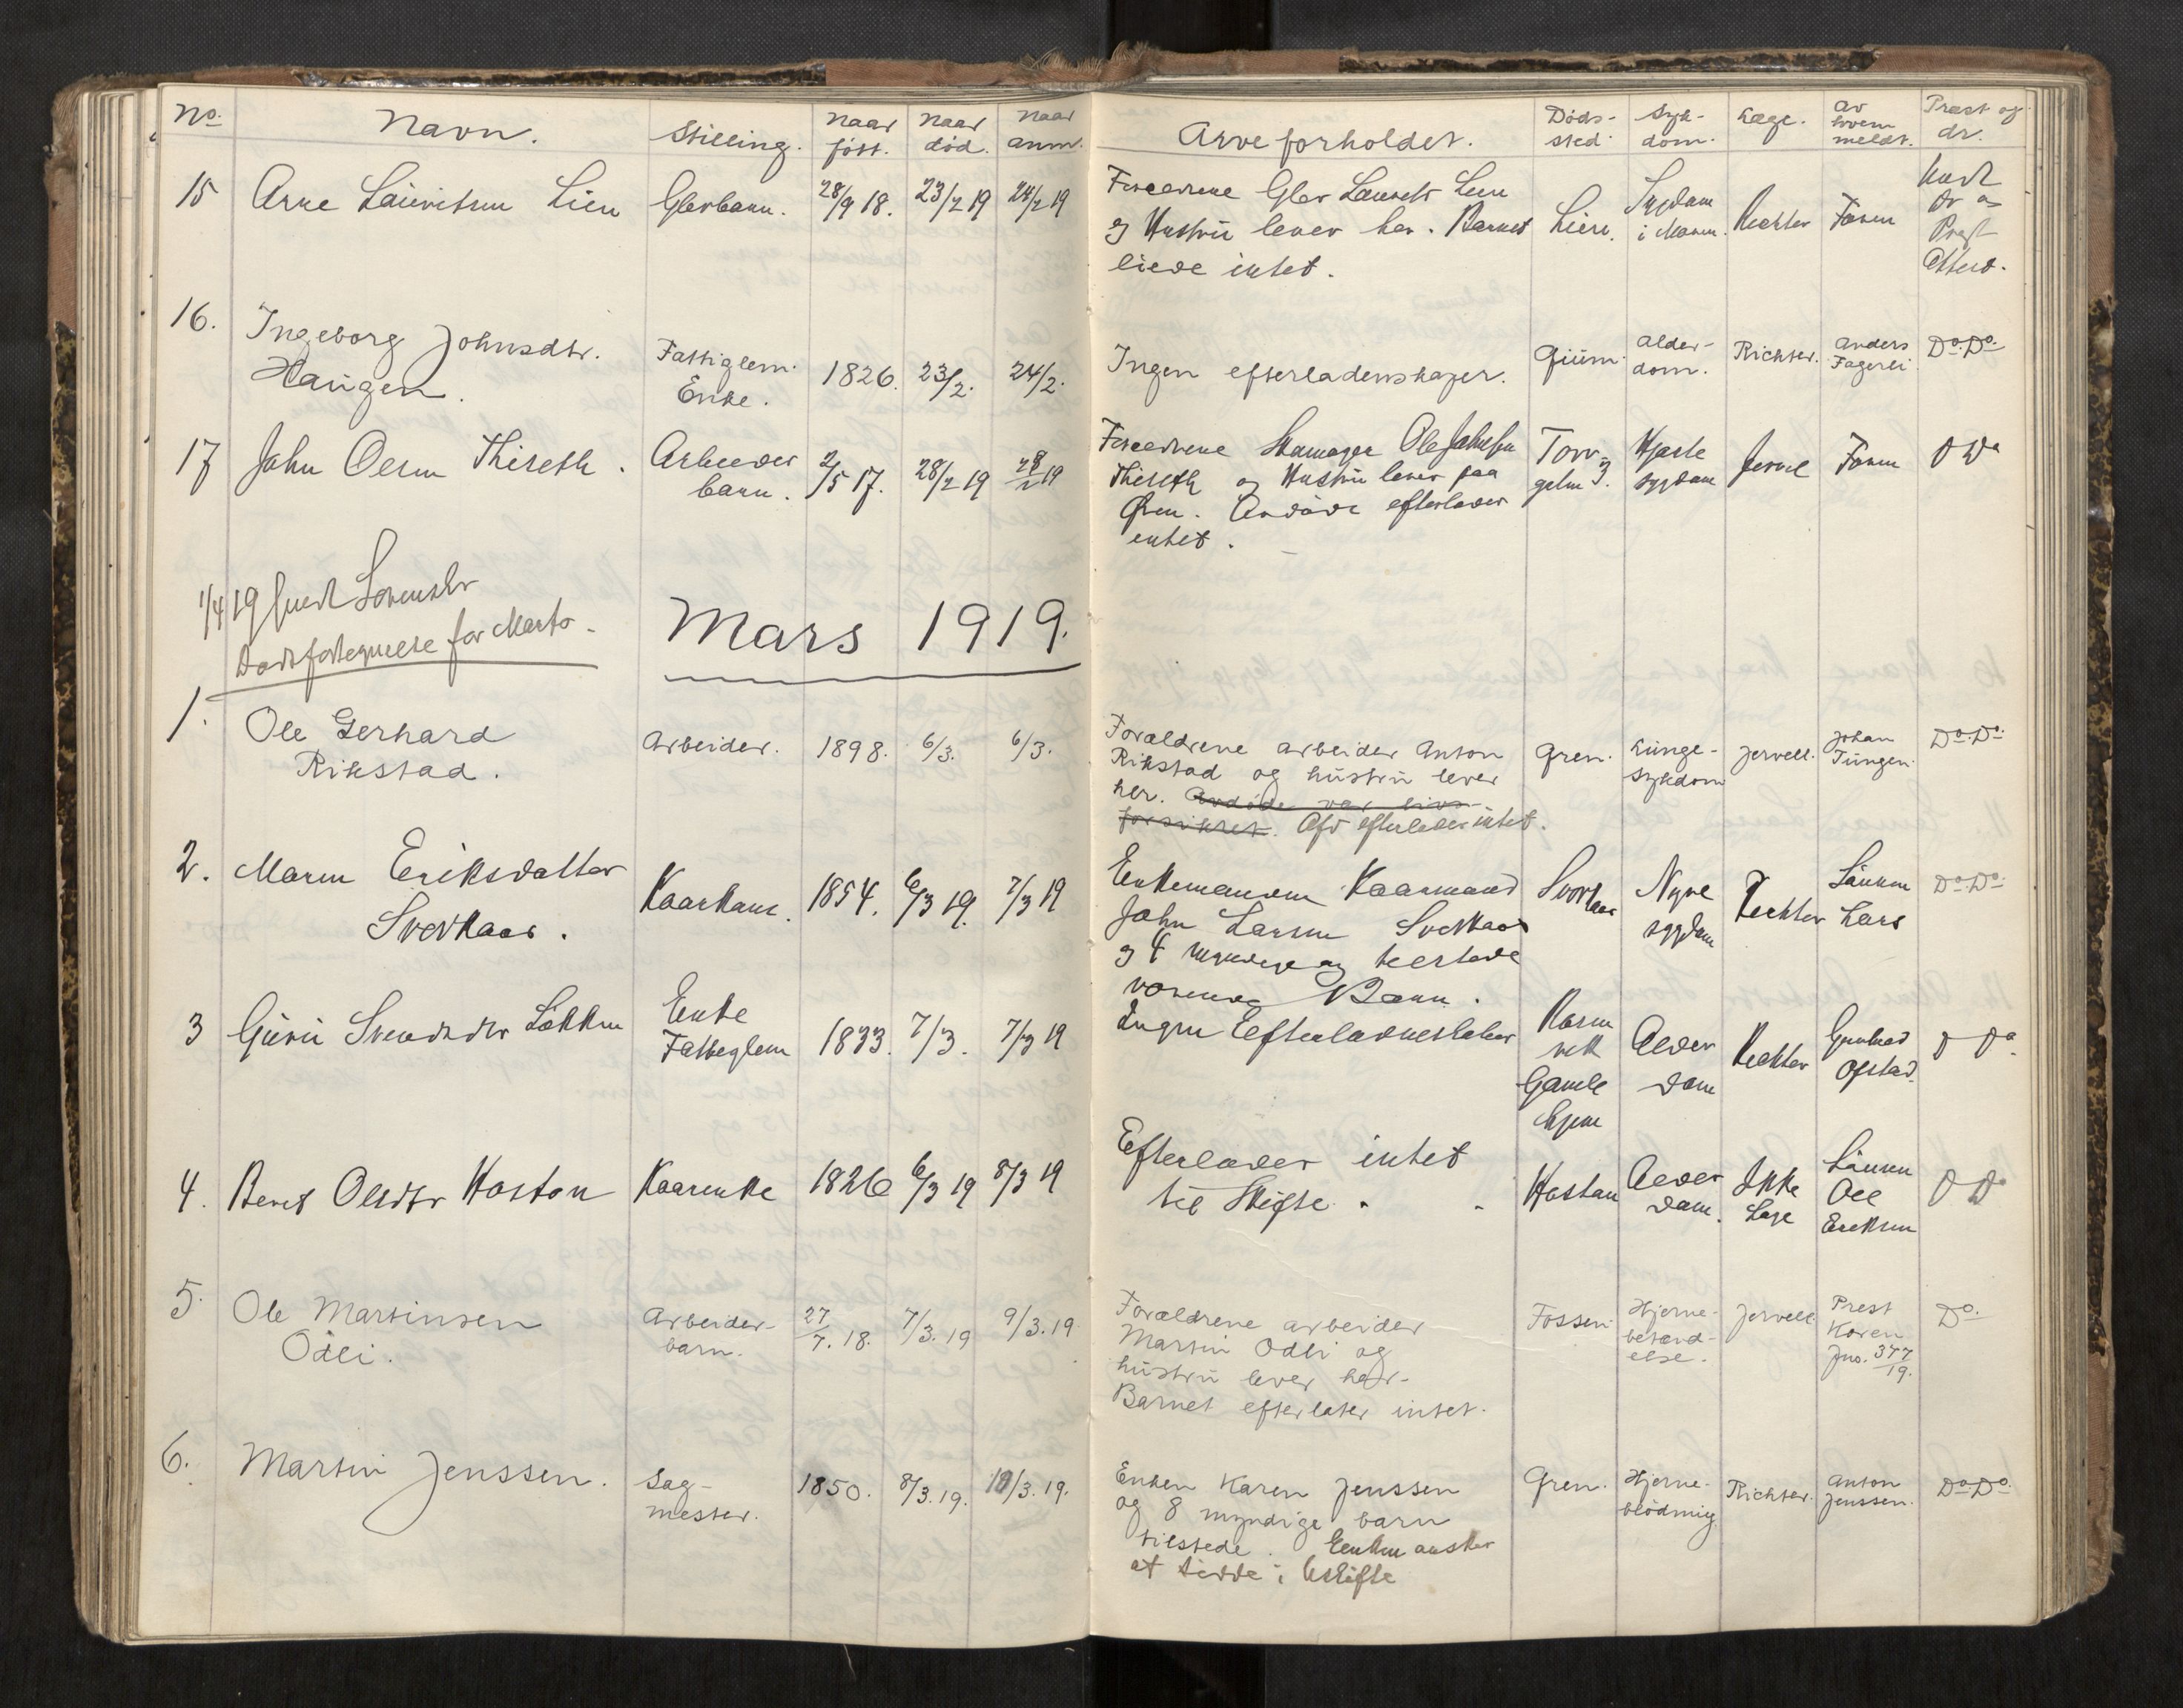 No. Navn. Stilling. Naar født. Naar død. Naar anm. Arveforholdet. Døds-sted. Syk-dom. Læge. Av hvem meldt. Prest og dr.
15 Arne Lauritsen Lien Gbrbarn. 28/9 18. 23/2 19 24/2 19
Forældrene Gbr Laurits Lien
og Hustru lever her. Barnet
eiede intet.
Lien. Sygdom
i Maven. Richter Faren
Dr og
Prest
Attest.
16. Ingeborg Johnsdtr.
Haugen.
Fattiglem.
Enke.
1826. 23/2. 24/2.
Ingen efterladenskaper.
Alder-
dom.
Richter. Anders
Fagerli
Do. Do.
17 John Olsen Thiseth. Arbeider
barn. 2/5 17. 28/2 19 28/2 19
Forældrene Skomager Ole Johnsen
Thiseth og Hustru lever paa
Øren. Avdøde efterlader
intet.
Hjerte
sygdom Jervel Faren D Do
1/4 19
Dødsfortegnelse for Marts
Mars 1919.
1. Ole Gerhard
Rikstad.
Arbeider. 1898. 6/3. 6/3.
Forældrene arbeider Anton
Rikstad og hustru lever
her. Avdøde var livs-
forsikret. Afd efterlader intet.
Øren. Lunge-
sykdom Jervell. Johan
Tungen.
Do. Do.
2. Maren Eriksdatter
Svorkaas.
Kaarkone. 1854. 6/3 19. 7/3 19
Enkemanden Kaarmand
John Larsen Svorkaas
og 4 myndige og tilstede
værende Børn.
Svorkaas Nyre
sygdom Richter Lars
Do. Do.
3 Guru Svendsdtr Løkken Enke
Fattiglem 1833. 7/3. 7/3 19
Ingen Efterladenskaber
Gamle
hjem
Alder
dom Richter
Ofstad.
D Do.
4. Beret Olsdtr Hoston Kaarenke 1826 6/3 19 8/3 19
Efterlader intet
til Skifte.
Hoston Alder
dom. Ikke
Læge
Ole
Eriksen
D Do
5. Ole Martinsen
Ødli.
Arbeider-
barn.
27/7. 18. 7/3. 19 9/3. 19
Forældrene arbeider
Martin Ødli og
hustru lever her.
Barnet efterlater intet.
Fossen. Hjerne-
betænd-
else.
Jervell Prest
Koren
Jno. 377/19.
Do.
6. Martin Jenssen. Sag-
mester.
1850. 8/3. 19. 10/3. 19.
Enken Karen Jenssen
og 8 myndige barn
tilstede. Enken ønsker
at sidde i Uskifte
Øren. Hjerne-
blødning. Richter. Anton
Jenssen.
Do Do.